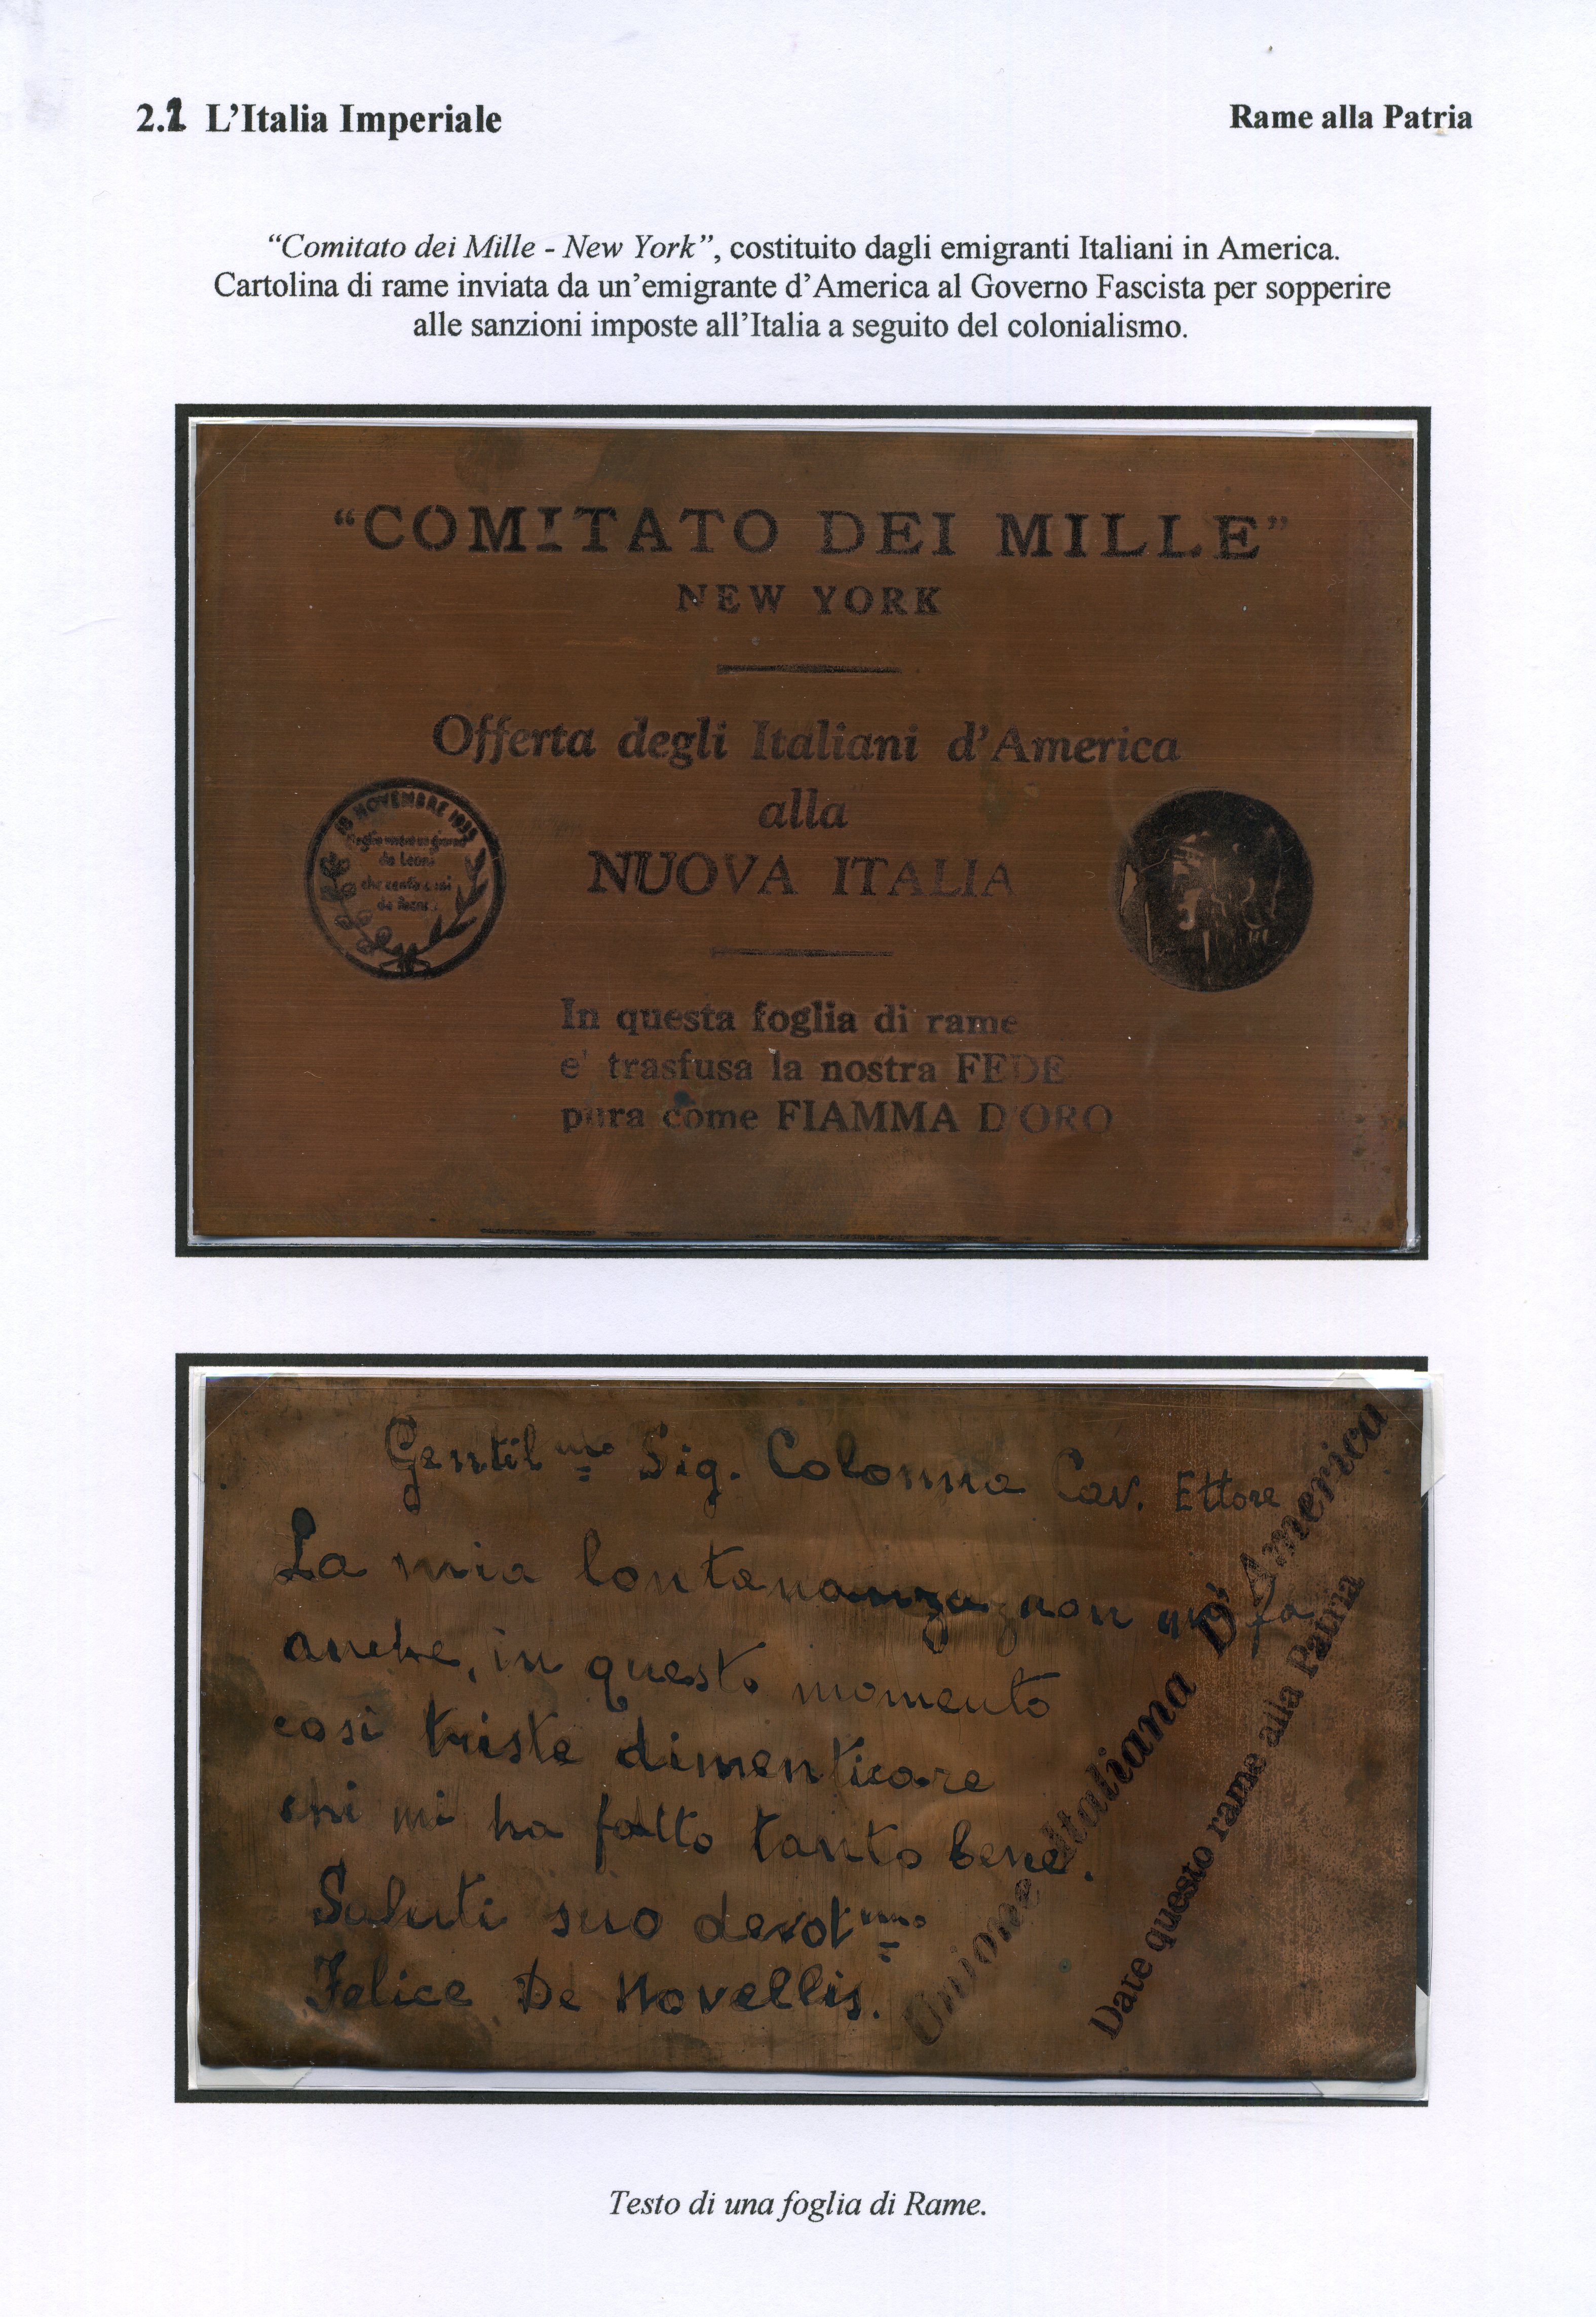 2.2 L'Italia Imperiale
Rame alla Patria
"Comitato dei Mille - New York", costituito dagli emigranti Italiani in America.
Cartolina di rame inviata da un'emigrante d'America al Governo Fascista per sopperire
alle sanzioni imposte all'Italia a seguito del colonialismo.
"COMITATO DEI MILLE"
NEW YORK
Offerta degli Italiani d'America
alla
NUOVA ITALIA
18 NOVEMBRE 1935
da Leoni
In questa foglia di rame
e' trasfusa la nostra FEDE
pura come FIAMMA D'ORO
Gentilmo Sig. Colonna Cav. Ettore
La mia lontananza non mi fa
anche, in questo momento
così triste dimenticare
chi mi ha fatto tanto bene.
Saluti suo devotmo
Felice De Novellis.
Unione Italiana D'America
Date questo rame alla Patria
Testo di una foglia di Rame.